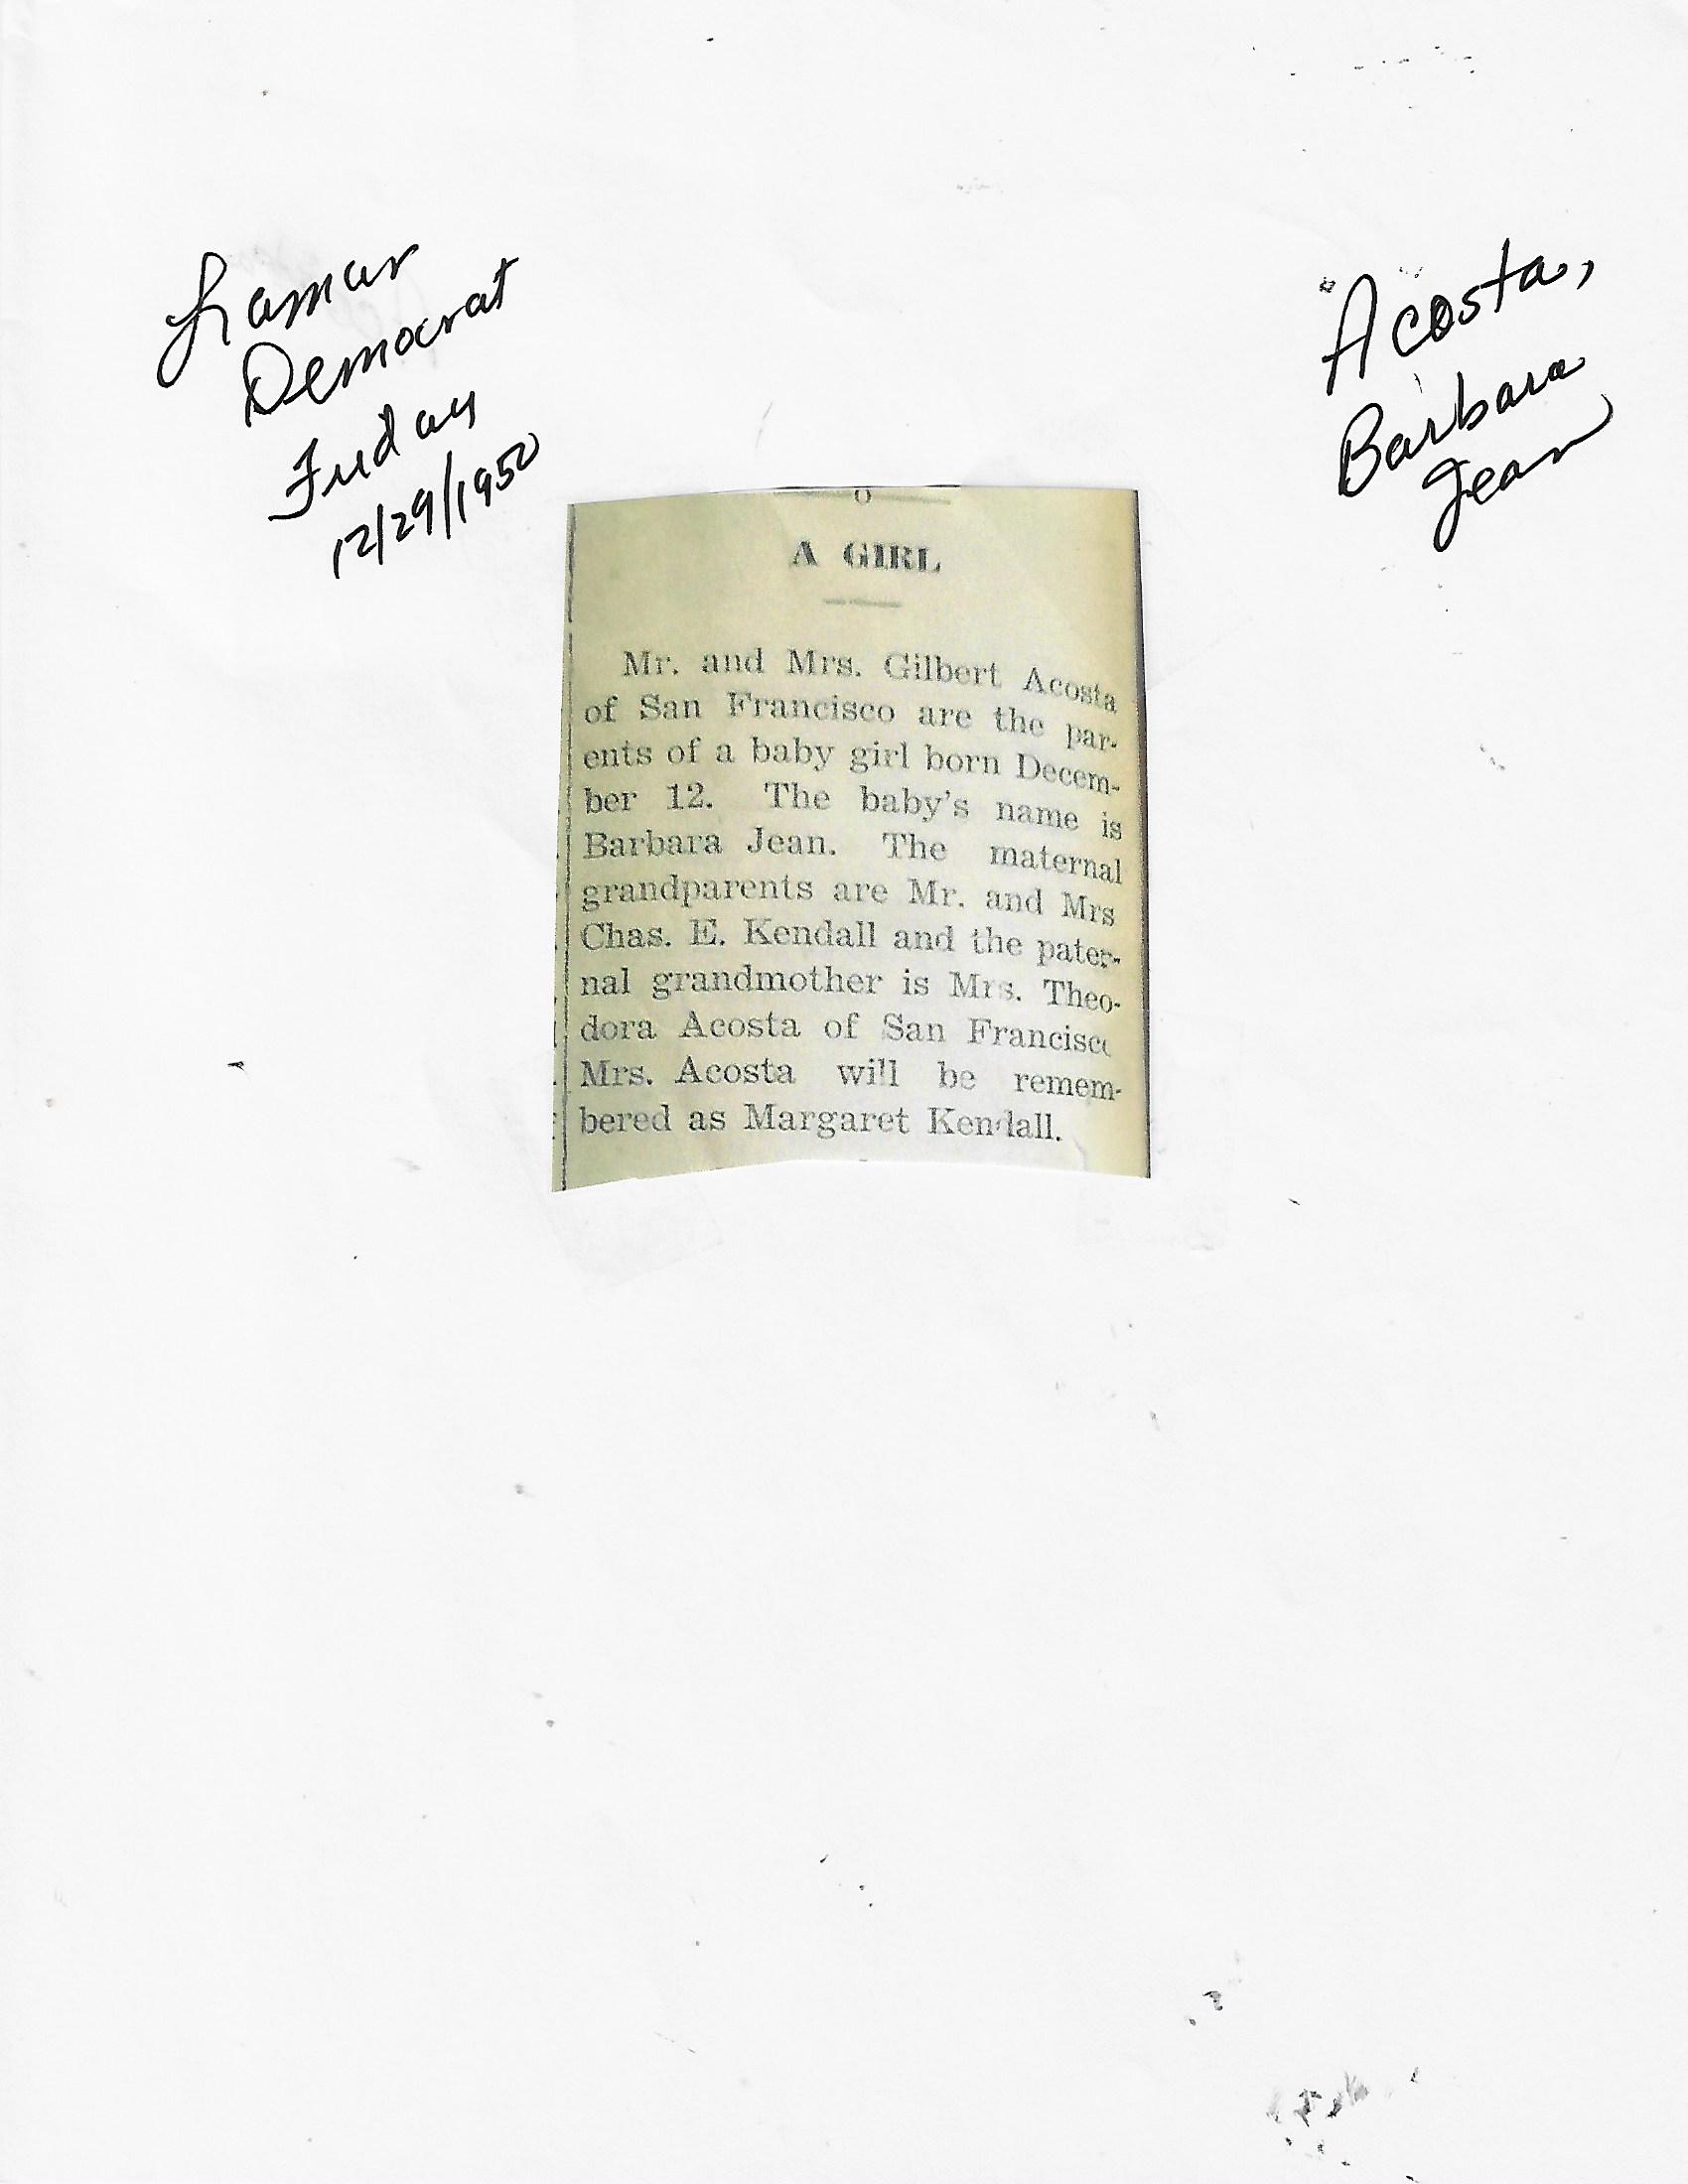 Lamar
Democrat
Friday
12/29/1950
Acosta,
Barbara
Jean
A GIRL
Mr. and Mrs. Gilbert Acosta
of San Francisco are the par-
ents of a baby girl born Decem-
ber 12. The baby's name is
Barbara Jean. The maternal
grandparents are Mr. and Mrs
Chas. E. Kendall and the pater-
nal grandmother is Mrs. Theo-
dora Acosta of San Francisco
Mrs. Acosta will be remem-
bered as Margaret Kendall.